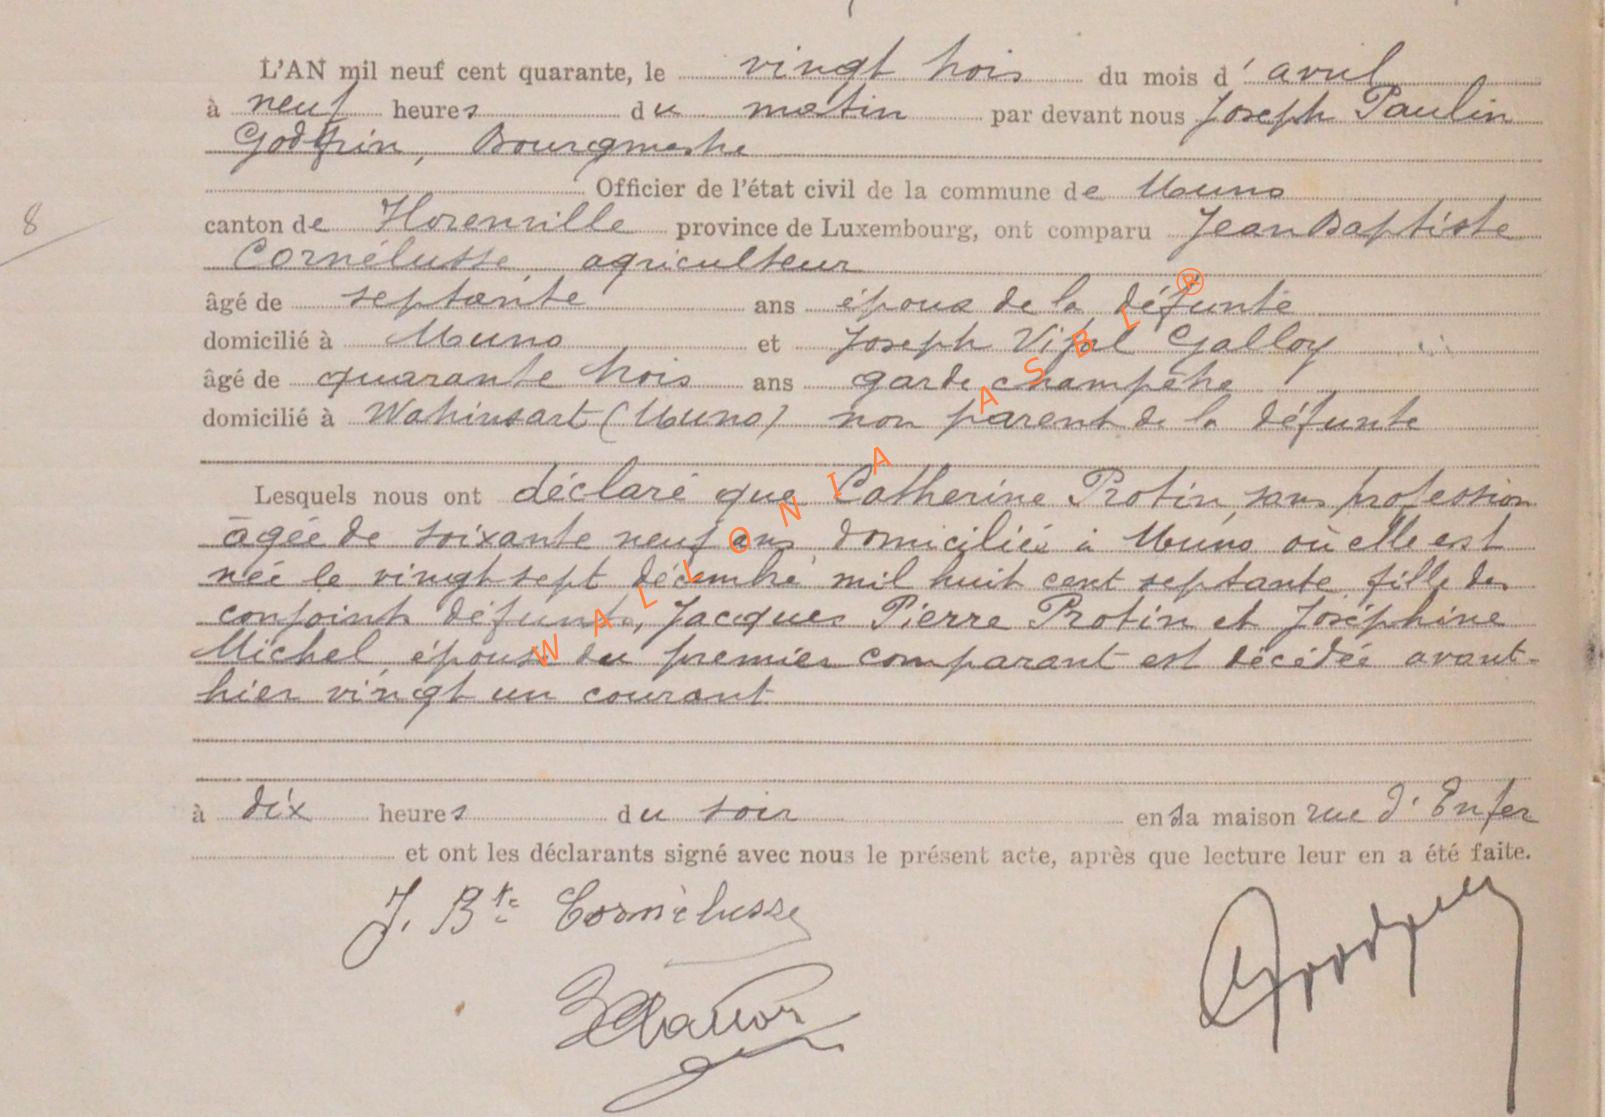 L'AN mil neuf cent quarante, le vingt trois du mois d' avril
à neuf heures du matin par devant nous Joseph Paulin
Godfrin, Bourgmestre
Officier de l'état civil de la commune de Muno
8
canton de Florenville province de Luxembourg, ont comparu Jean Baptiste
Cornélusse, agriculteur
âgé de septante ans époux de la défunte
domicilié à Muno et Joseph Vital Galloy
âgé de quarante trois ans garde champêtre
domicilié à Watrinsart (Muno) non parent de la défunte
Lesquels nous ont déclaré que Catherine Protin, sans profession
âgée de soixante neuf ans, domiciliée à Muno où elle est
née le vingt sept décembre mil huit cent septante, fille des
conjoints défunts, Jacques Pierre Protin et Joséphine
Michel, épouse du premier comparant est décédée avant-
hier vingt un courant
à dix heures du soir en sa maison rue d'Enfer
et ont les déclarants signé avec nous le présent acte, après que lecture leur en a été faite.
J. Bte Cornèlusse
WALLONIA ASBL ®